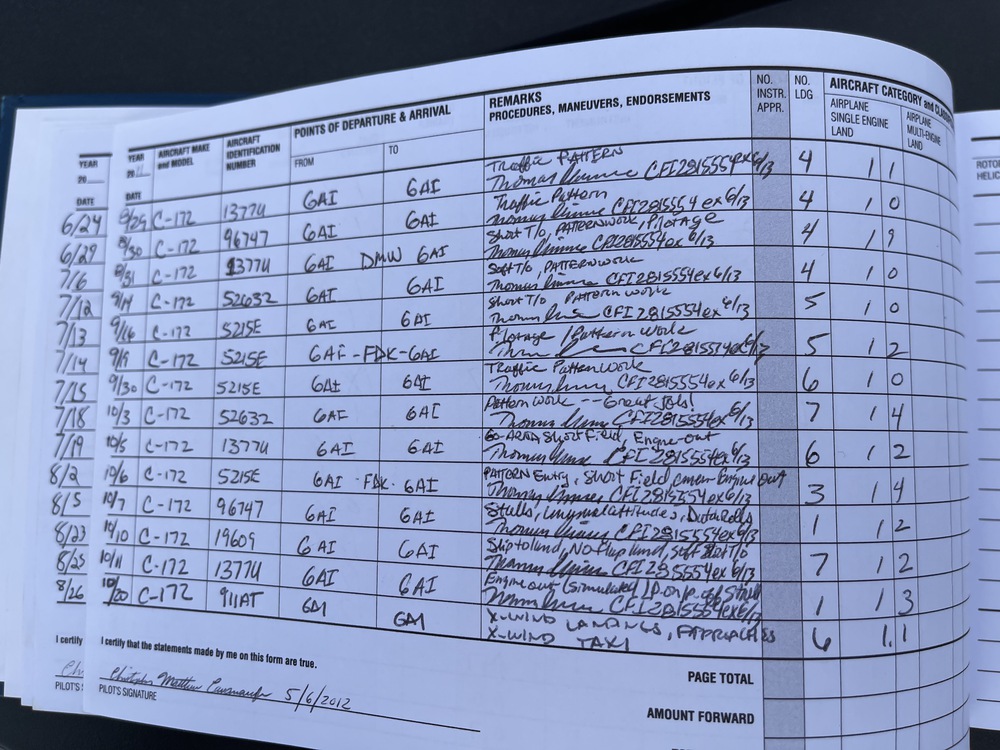 YEAR
20
DATE
6/24
6/29
7/6
7/12
7/13
7/14
7/15
7/18
7/19
8/2
8/5
8/23
8/25
8/26
I certify
PILOT'S
YEAR
20 11
DATE
AIRCRAFT MAKE
and MODEL
AIRCRAFT
IDENTIFICATION
NUMBER
POINTS OF DEPARTURE & ARRIVAL
FROM
TO
REMARKS
PROCEDURES, MANEUVERS, ENDORSEMENTS
NO.
INSTR.
APPR.
NO.
LDG
AIRCRAFT CATEGORY and
AIRPLANE
SINGLE ENGINE
LAND
AIRPLANE
MULTI-ENGINE
LAND
8/29 C-172 1377U 6AI 6AI Traffic PATTERN 4 1 1
CFI2815554ex6/13
8/30 C-172 96747 6AI 6AI Traffic Pattern 4 1 0
CFI2815554ex6/13
8/31 C-172 1377U 6AI DMW 6AI Short T/O, PATTERNWORK, Pilotage 4 1 9
CFI2815554ex6/13
9/14 C-172 52632 6AI 6AI Soft T/o, PATTERNWORK 4 1 0
CFI2815554ex6/13
9/16 C-172 5215E 6AI 6AI Short T/o PATTERN WORK 5 1 0
CFI2815554ex6/13
9/19 C-172 5215E 6AI-FDK-6AI Pilotage / Pattern Work 5 1 2
CFI2815554ex6/13
9/30 C-172 5215E 6AI 6AI Traffic Pattern Work 6 1 0
CFI2815554ex6/13
10/3 C-172 52632 6AI 6AI Pattern Work -- Great Job! 7 1 4
CFI2815554ex6/13
10/5 C-172 1377U 6AI 6AI Short Field, Engine-out 6 1 2
CFI2815554ex6/13
10/6 C-172 5215E 6AI - FDK - 6AI PATTERN Entry, Short Field, Engine out 3 1 4
CFI2815554ex6/13
10/7 C-172 96747 6AI 6AI Stalls, Unusual attitudes, Dutch Rolls 1 1 2
CFI2815554ex6/13
10/10 C-172 19609 6AI 6AI Slip to land, No flap land, Soft T/o 7 1 2
CFI2815554ex6/13
10/11 C-172 1377U 6AI 6AI Engine out (Simulated) 1 1 3
CFI2815554ex6/13
10/20 C-172 911AT 6AI 6AI X-WIND LANDINGS, APPROACHES 6 1.1
X-WIND TAXI
I certify that the statements made by me on this form are true.
Matthew 5/6/2012
PILOT'S SIGNATURE
PAGE TOTAL
AMOUNT FORWARD